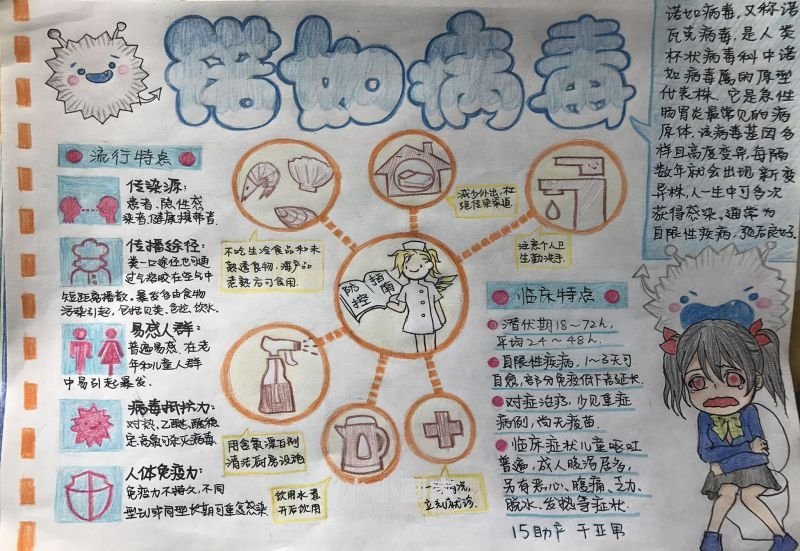 诺如病毒
诺如病毒,又称诺
瓦克病毒,是人类
杯状病毒科中诺
如病毒属的原型
代表株。它是急性
肠胃炎最常见的病
原体。该病毒基因多
样且高度变异,每隔
数年就会出现新变
异株,人一生中可多次
获得感染,通常为
自限性疾病,预后良好。
流行特点
传染源:
患者、隐性感
染者、健康携带者
传播途径:
粪—口途径也可通
过气溶胶在空气中
短距离播散,暴发多由食物
污染引起,包括贝类、色拉、饮水。
易感人群:
普遍易感,在老
年和儿童人群
中易引起暴发.
病毒抵抗力:
对热、乙醚、酸稳
定,高氯可杀灭病毒.
人体免疫力:
免疫力不持久,不同
型别或同型长期可重复感染
不吃生冷食品和未
熟透食物,海产品
煮熟后可食用.
减少外出,杜
绝传染渠道
注意个人卫
生勤洗手.
防控
指南
用含氯漂白剂
清洁厨房设施
饮用水煮
开后饮用
立刻就诊.
临床特点
潜伏期18~72h,
平均24~48h.
自限性疾病,1~3天可
自愈,部分免疫低下者延长.
对症治疗,少见重症
病例,尚无疫苗.
临床症状儿童呕吐
普遍,成人腹泻居多,
另有恶心、腹痛、乏力、
脱水、发热等症状.
15助产 于亚男